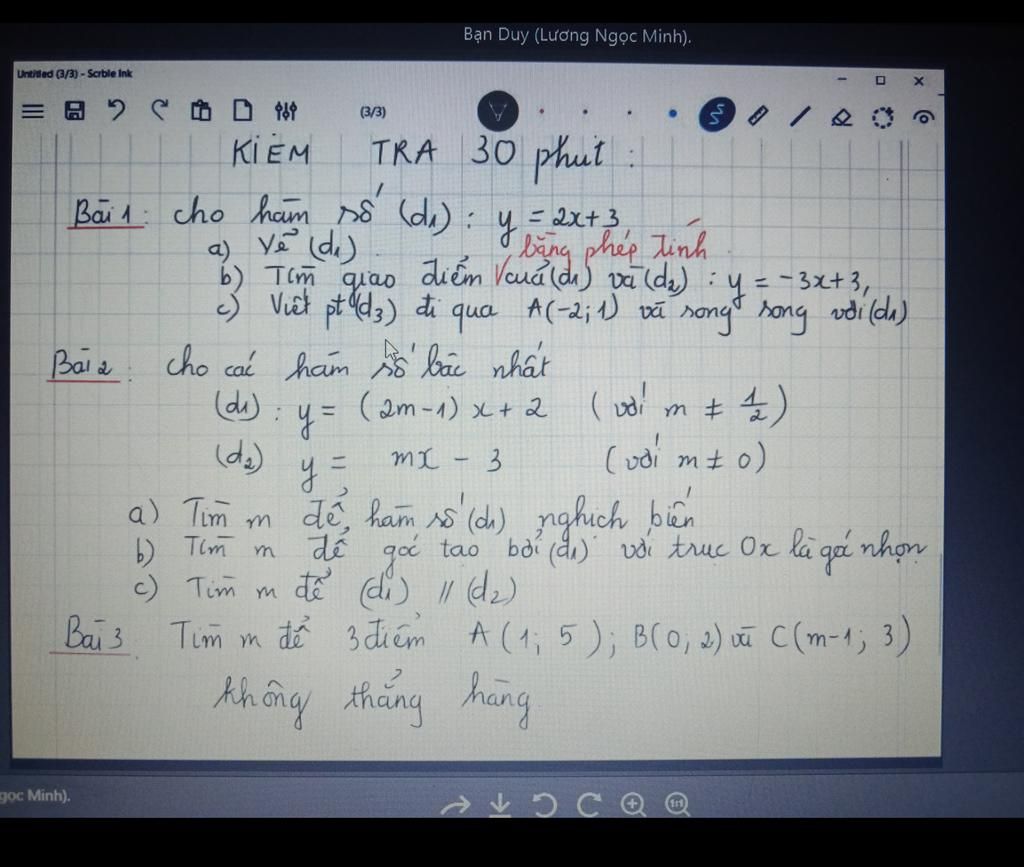 Bạn Duy (Lương Ngọc Minh).
Untitled (3/3) - Scrble Ink
(3/3)
KIỂM TRA 30 phút :
Bài 1 : cho hàm số (d1) : y = 2x+3
a) Vẽ (d1)
bằng phép tính
b) Tìm giao điểm của (d1) và (d2) : y = -3x+3,
c) Viết pt (d3) đi qua A(-2; 1) và song song với (d1)
Bài 2 : cho các hàm số bậc nhất
(d1) : y = (2m-1) x + 2 (với m ≠ 1/2)
(d2) y = mx - 3 (với m ≠ 0)
a) Tìm m để hàm số (d1) nghịch biến
b) Tìm m để góc tạo bởi (d1) với trục Ox là góc nhọn
c) Tìm m để (d1) // (d2)
Bài 3 Tìm m để 3 điểm A(1; 5); B(0; 2) và C(m-1; 3)
không thẳng hàng
gọc Minh).
1:1